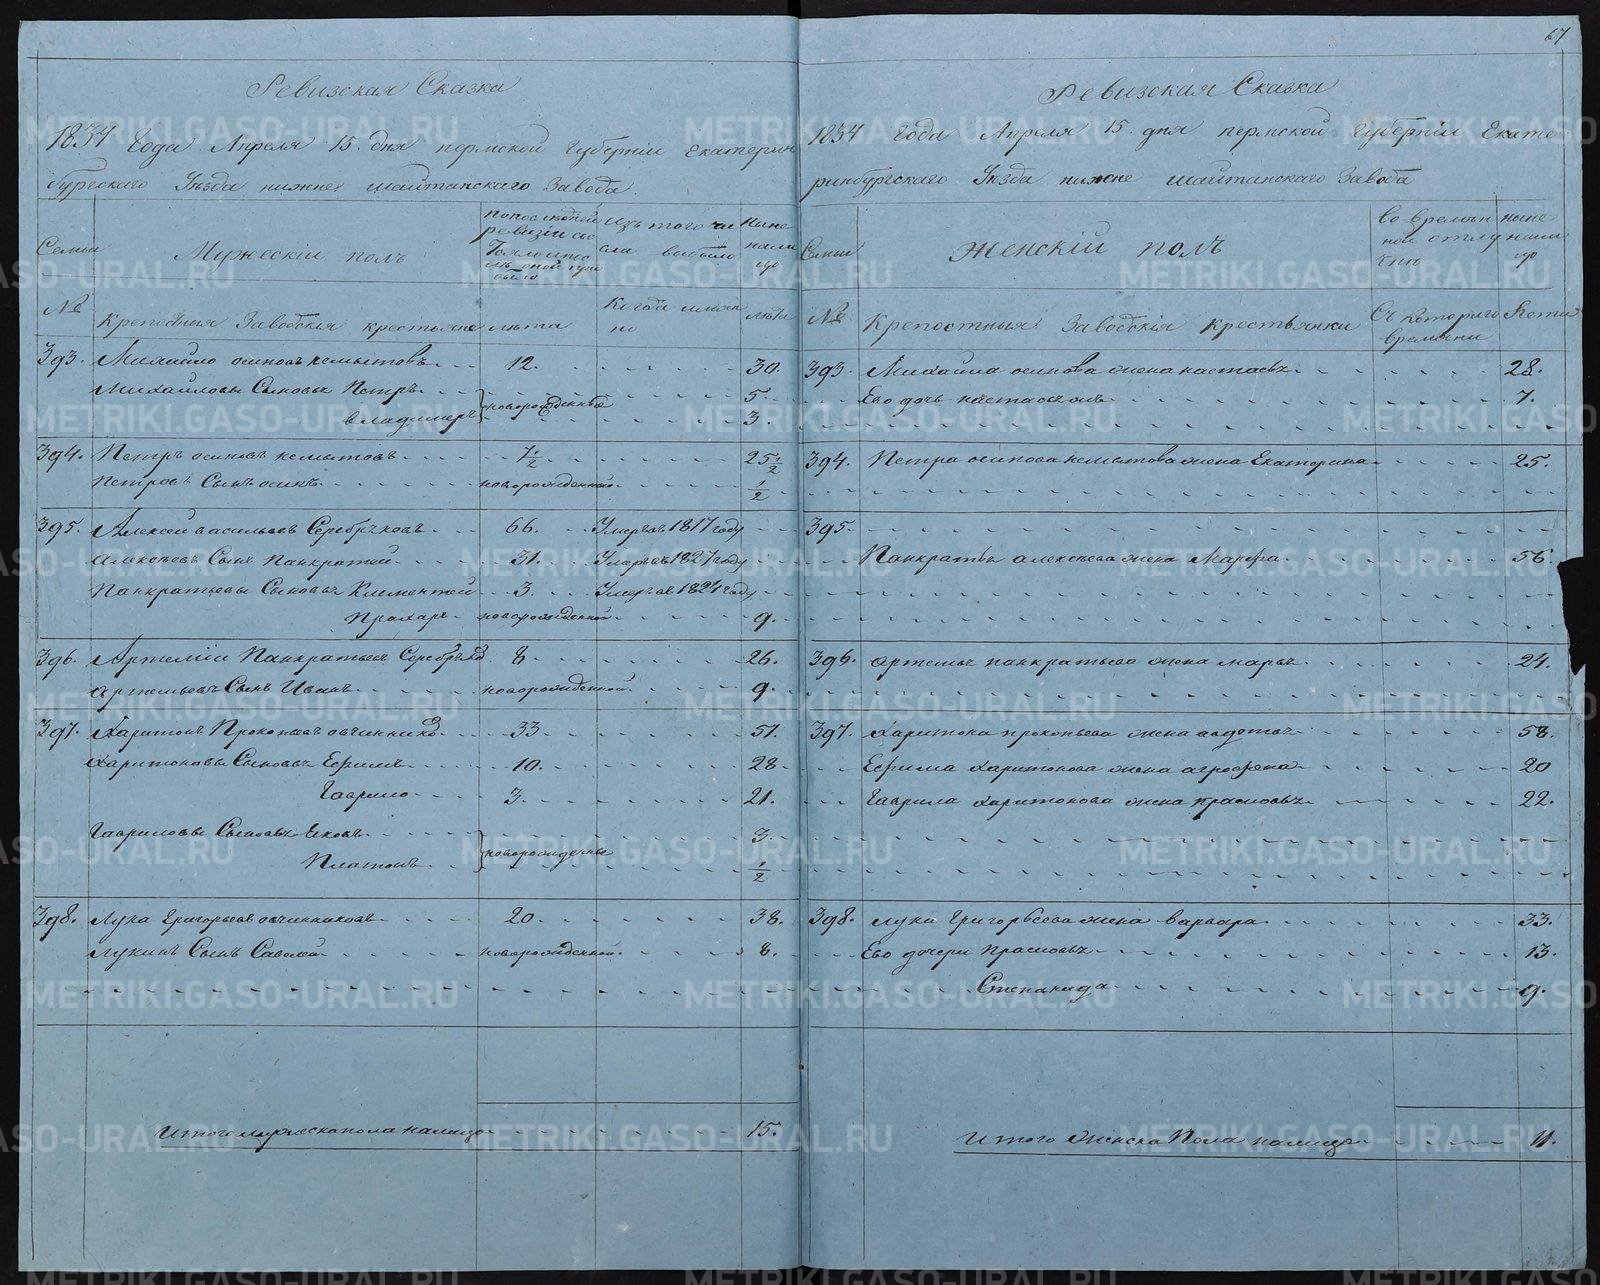 67
Ревизская Сказка
1834 Года Апреля 15. дня пермской Губерніи Екатерин
бургскаго Уѣзда нижнег шайтанскаго Завода
Семьи
Мужескій полъ
попоследней
ревизіи со
Изъ того чи
сла выбыло
Ныне
нали
цо
№
Крепостныя Заводскія крестьяне
лета
Когда имян
но
лѣта
393. Михайло осиповъ кемытовъ 12. 30.
Михайловы Сыновья Петръ 5.
владимеръ новорожденныя 3.
394. Петръ осиповъ кемытовъ 7 1/2 25 1/2
Петровъ Сынъ осипъ новорожденной 1/2
395. Алексей васильевъ Серебряковъ 66. Умеръ въ 1817 году
Алексѣевъ Сынъ Панкратей 31. Умеръ въ 1827 году
Панкратьевы Сыновья Климентей 3. Умеръ въ 1821 году
Прохаръ новорожденной 9.
396. Артемій Панкратьевъ Серебряковъ 8 26.
Артемьевъ Сынъ Иванъ новорожденной 9.
397. Харитонъ Прокопьевъ овчинников 33 51.
Харитоновы Сыновья Ефимъ 10. 28
Гаврило 3. 21.
Гавриловы Сыновья 3.
Платонъ новорожденные 1/2
398. Лука Григорьевъ овчинниковъ 20 38.
Лукинъ Сынъ Савелей новорожденной 8.
Итого мужеска пола налицо 15.
Ревизская Сказка
1834 года Апреля 15. дня пермской Губерніи Екате
ринбургскаго Уѣзда нижне шайтанскаго Завода
Семьи
Женскій полъ
во времен
ной отлу
ныне
нали
цо
№
Крепостныя Заводскія крестьянки
Съ котораго
времени
Лета
393. Михаила осипова жена настасья 28.
Ево дочь 7.
394. Петра осипова кемытова жена Екатерина 25.
395.
Панкратья алексеева жена Марфа 56.
396. Артемья панкратьева жена марья 24.
397. Харитона прокопьева жена авдотья 58.
Ефима харитонова жена агрофена 20
Гаврила харитонова жена прасковья 22.
398. Луки Григорьева жена варвара 33.
Ево дочери Прасковья 13.
Степанида 9.
Итого Женска Пола налицо 11.
METRIKI.GASO-URAL.RU